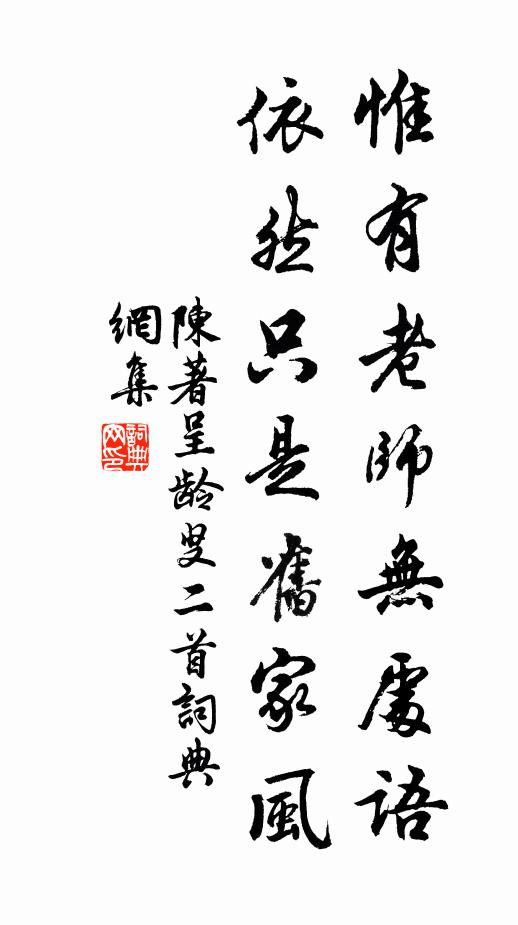 惟有老師無處語
依然只是舊家風
陳著呈龄叟二首詞典
網集
詞典网印